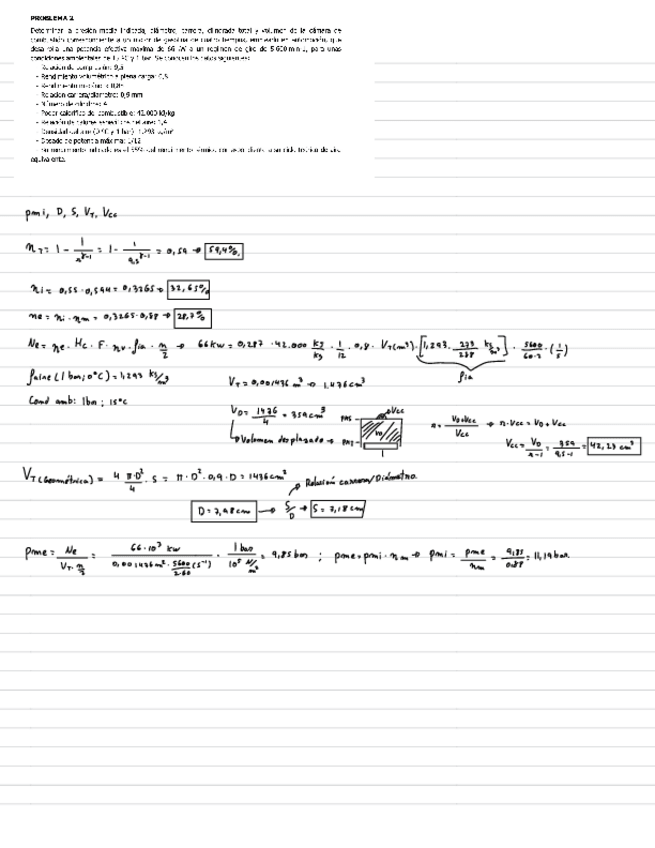 PROBLEMA 2
Determinar la presión media indicada, diámetro, carrera, cilindrada total y volumen de la cámara de
combustión correspondiente a un motor de gasolina de cuatro tiempos, empleado en automoción, que
desarrolla una potencia efectiva máxima de 66 kW a un régimen de giro de 5600 min-1, para unas
condiciones ambientales de 15 ºC y 1 bar. Se conocen los datos siguientes:
- Relación de compresión: 9,5
- Rendimiento volumétrico a plena carga: 0,8
- Rendimiento mecánico: 0,88
- Relación carrera/diámetro: 0,9 mm
- Número de cilindros: 4
- Poder calorífico del combustible: 42.000 kJ/kg
- Relación de calores específicos del aire: 1,4
- Densidad del aire (0 ºC y 1 bar): 1,293 kg/m³
- Dosado de potencia máxima: 1/12
- rendimiento indicado es el 55% del rendimiento térmico
equivalente.
pmi, D, S, VT, Vcc
ηT = 1 - 1/r^(γ-1) = 1 - 1/9,5^(γ-1) = 0,59 → 59,4%
ηi = 0,55 · 0,594 = 0,3265 → 32,65%
ηe = ηi · ηm = 0,3265 · 0,88 → 28,7%
Ne = ηe · Hc · F · ηv · ρia · n/2 → 66kW = 0,287 · 42.000 kJ/kg · 1/12 · 0,8 · VT(m³) · [1,293 · 273/288 kg/m³] · 5600/60·2 · (1/s)
ρaire (1 bar; 0°C) = 1,293 kg/m³ VT = 0,001436 m³ → 1.436 cm³ ρia
Cond amb: 1bar; 15°C
VD = 1436/4 = 359 cm³ PMS Vcc
Volumen desplazado → PMI VD
r = VD+Vcc/Vcc → r·Vcc = VD + Vcc
Vcc = VD/r-1 = 359/9,5-1 = 42,23 cm³
VT (Geométrica) = 4 π·D²/4 · S = π · D² · 0,9 · D = 1436 cm³
Relación carrera/Diámetro
D = 7,98 cm → S/D → S = 7,18 cm
pme = Ne/VT · n/2 = 66·10³ kW/0,001436 m³ · 5600/2·60 (s⁻¹) · 1 bar/10⁵ N/m² = 9,85 bar ; pme = pmi · ηm → pmi = pme/ηm = 9,85/0,88 = 11,19 bar